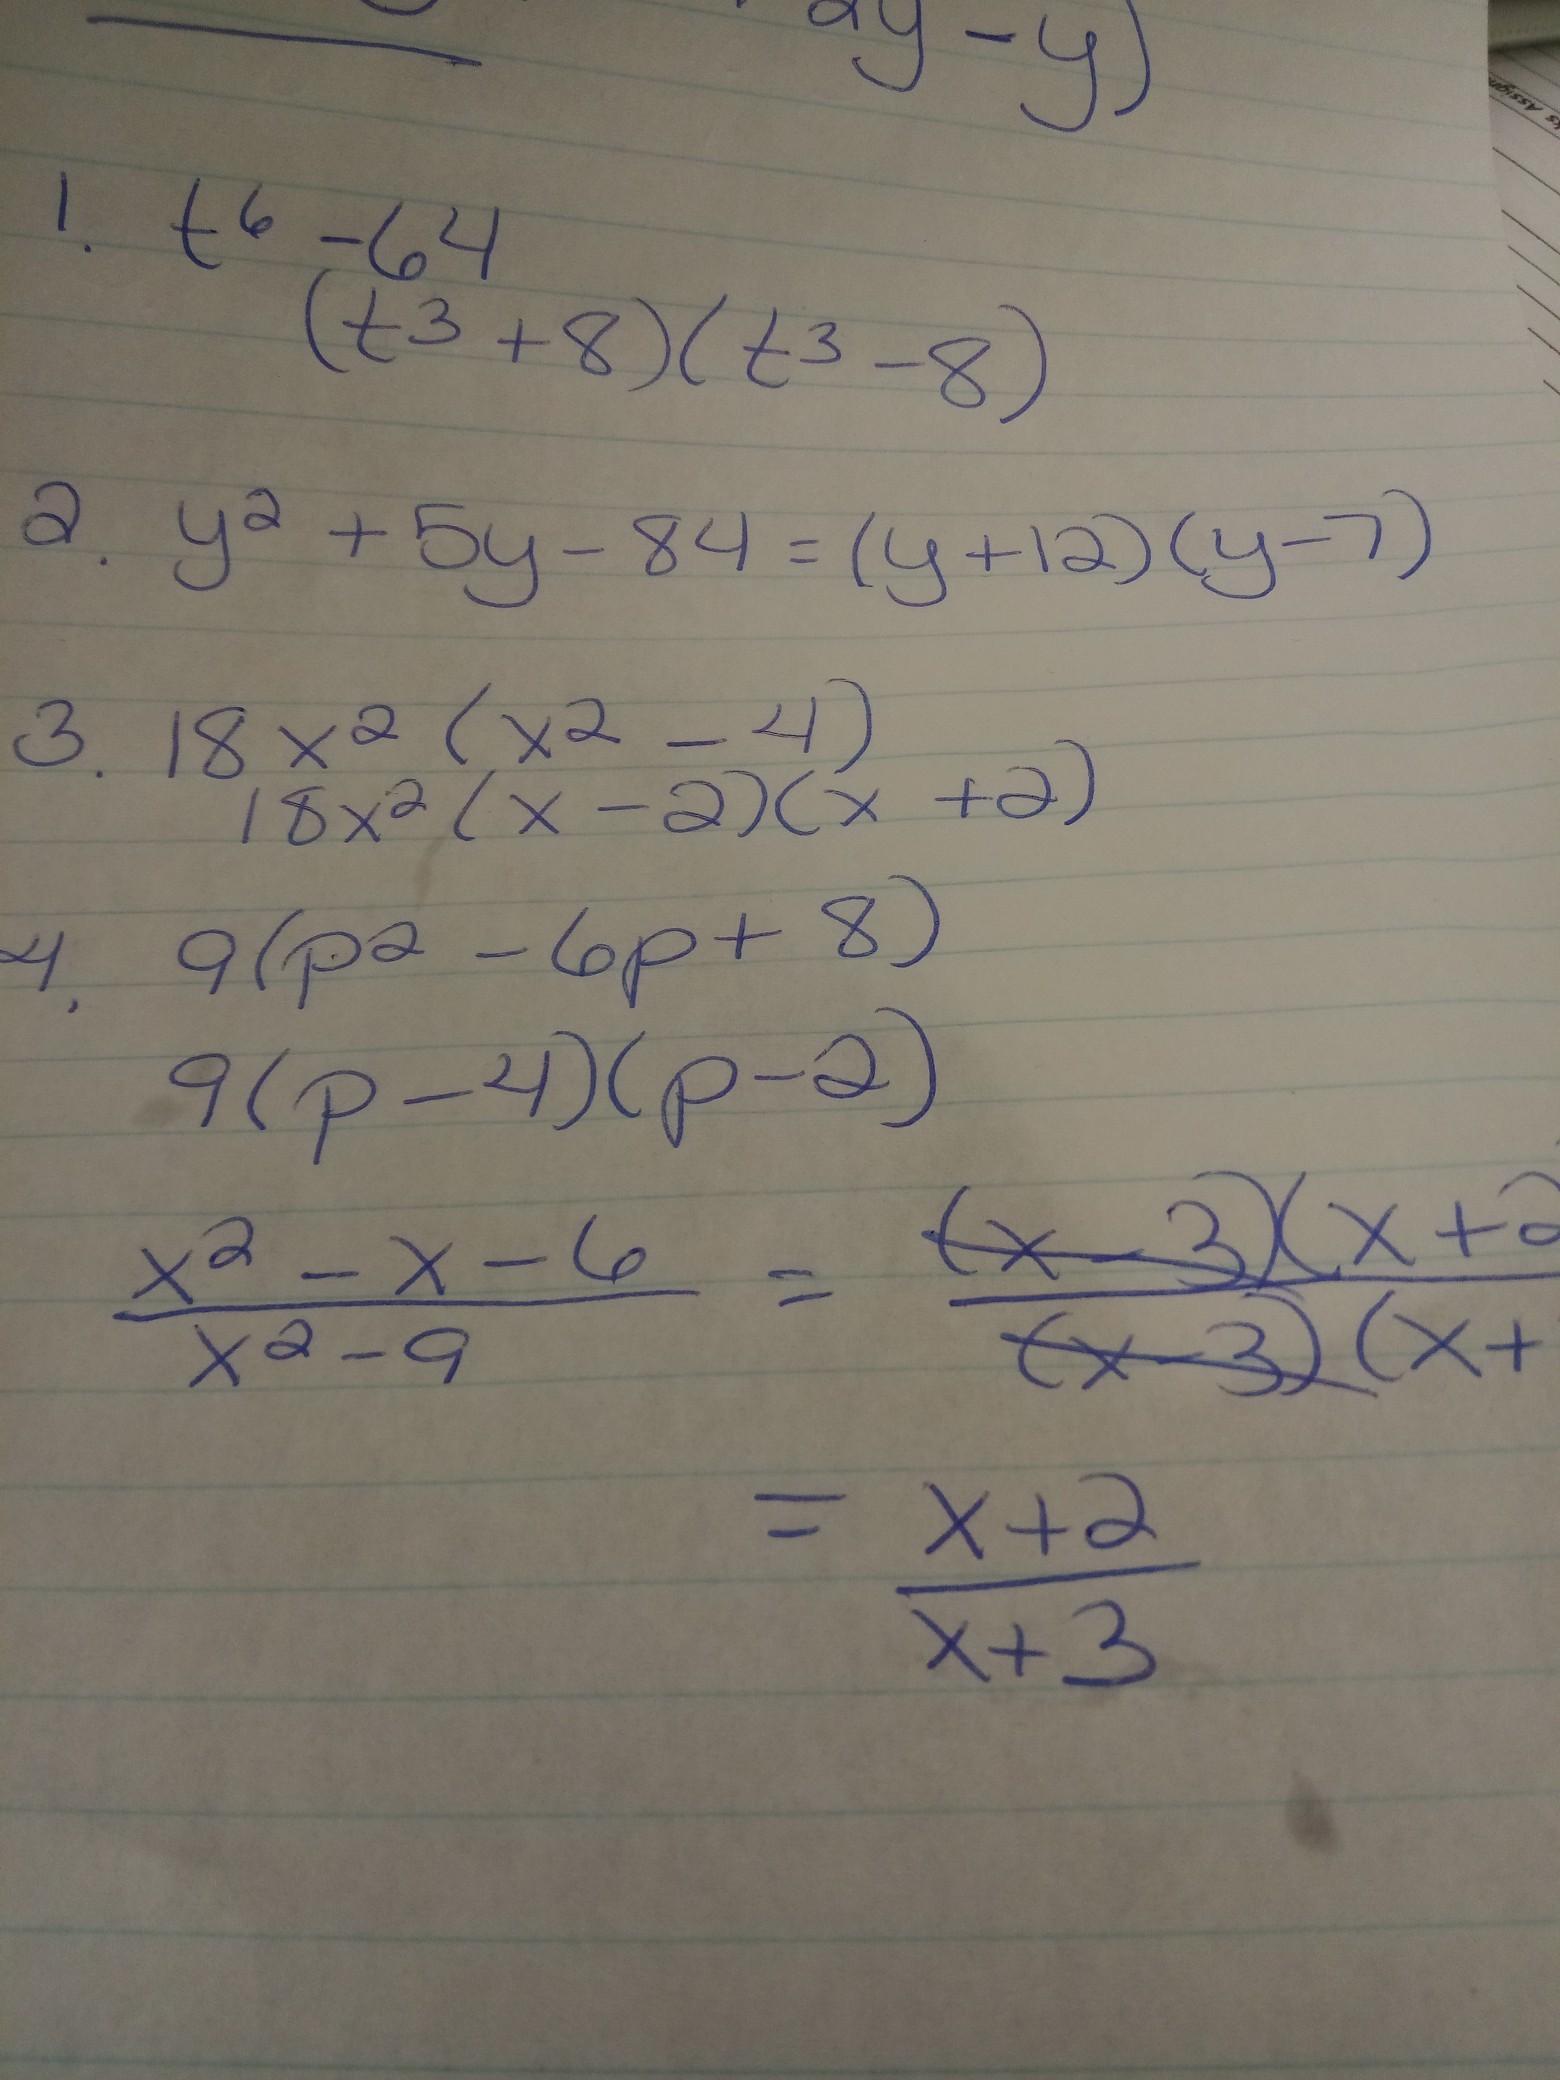 2y - y)
1. t⁶ - 64
(t³ + 8)(t³ - 8)
2. y² + 5y - 84 = (y + 12)(y - 7)
3. 18x² (x² - 4)
18x² (x - 2)(x + 2)
4. 9(p² - 6p + 8)
9(p - 4)(p - 2)
x² - x - 6 = (x - 3)(x + 2
x² - 9 (x - 3)(x +
= x + 2
x + 3